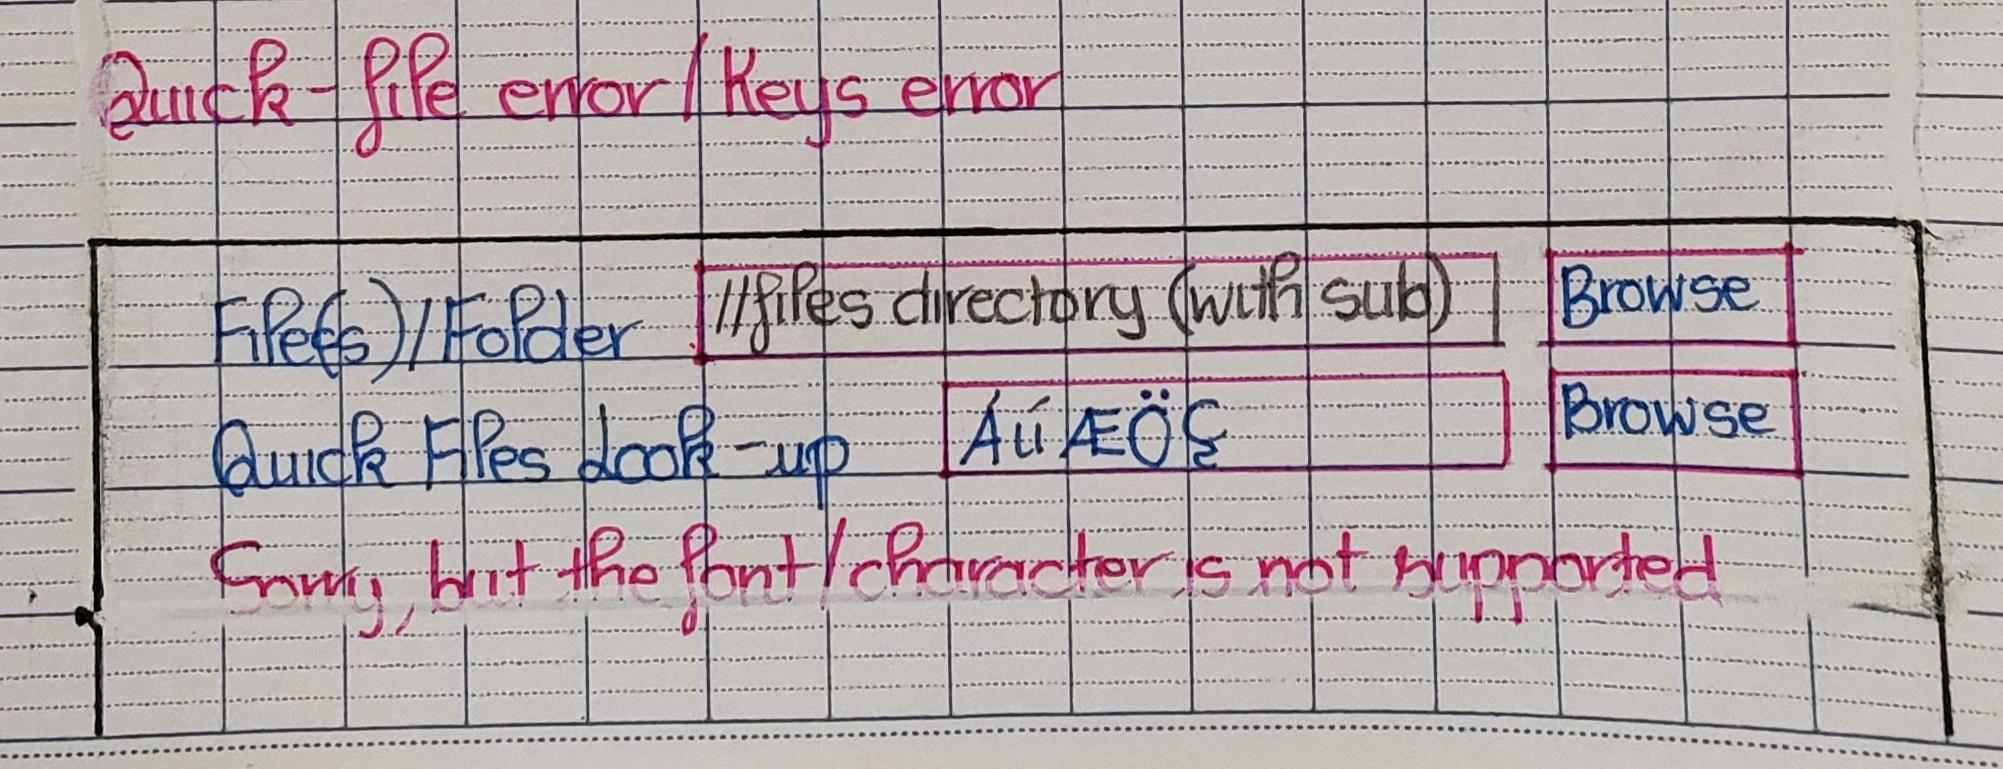 Quick-file error/Keys error
File(s)/Folder //files directory (with sub) Browse
Quick Files Look-up ÁúÆÖ Browse
Sorry, but the font/character is not supported